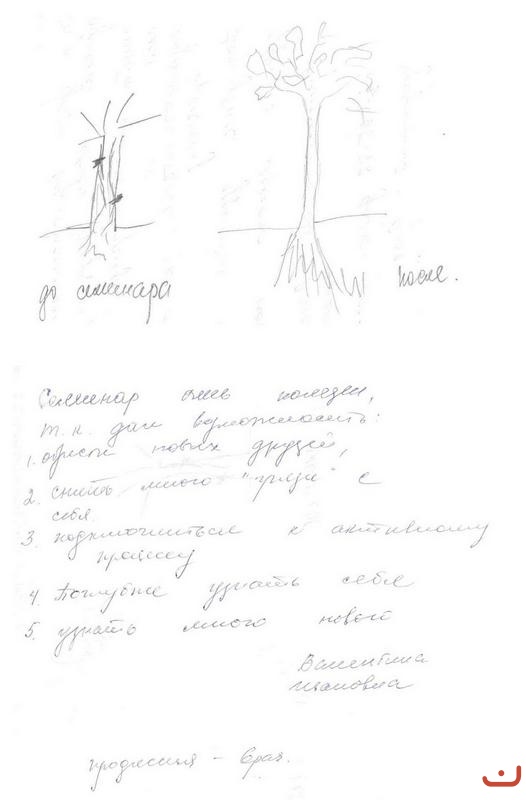 до семинара
после.
Семинар очень полезен,
т.к. дал возможность:
1. обрести новых друзей,
2. снять много "грязи" с
себя.
3. подключиться к активному
процессу
4. Поглубже узнать себя
5. узнать много нового
Валентина
Ивановна
профессия - врач.